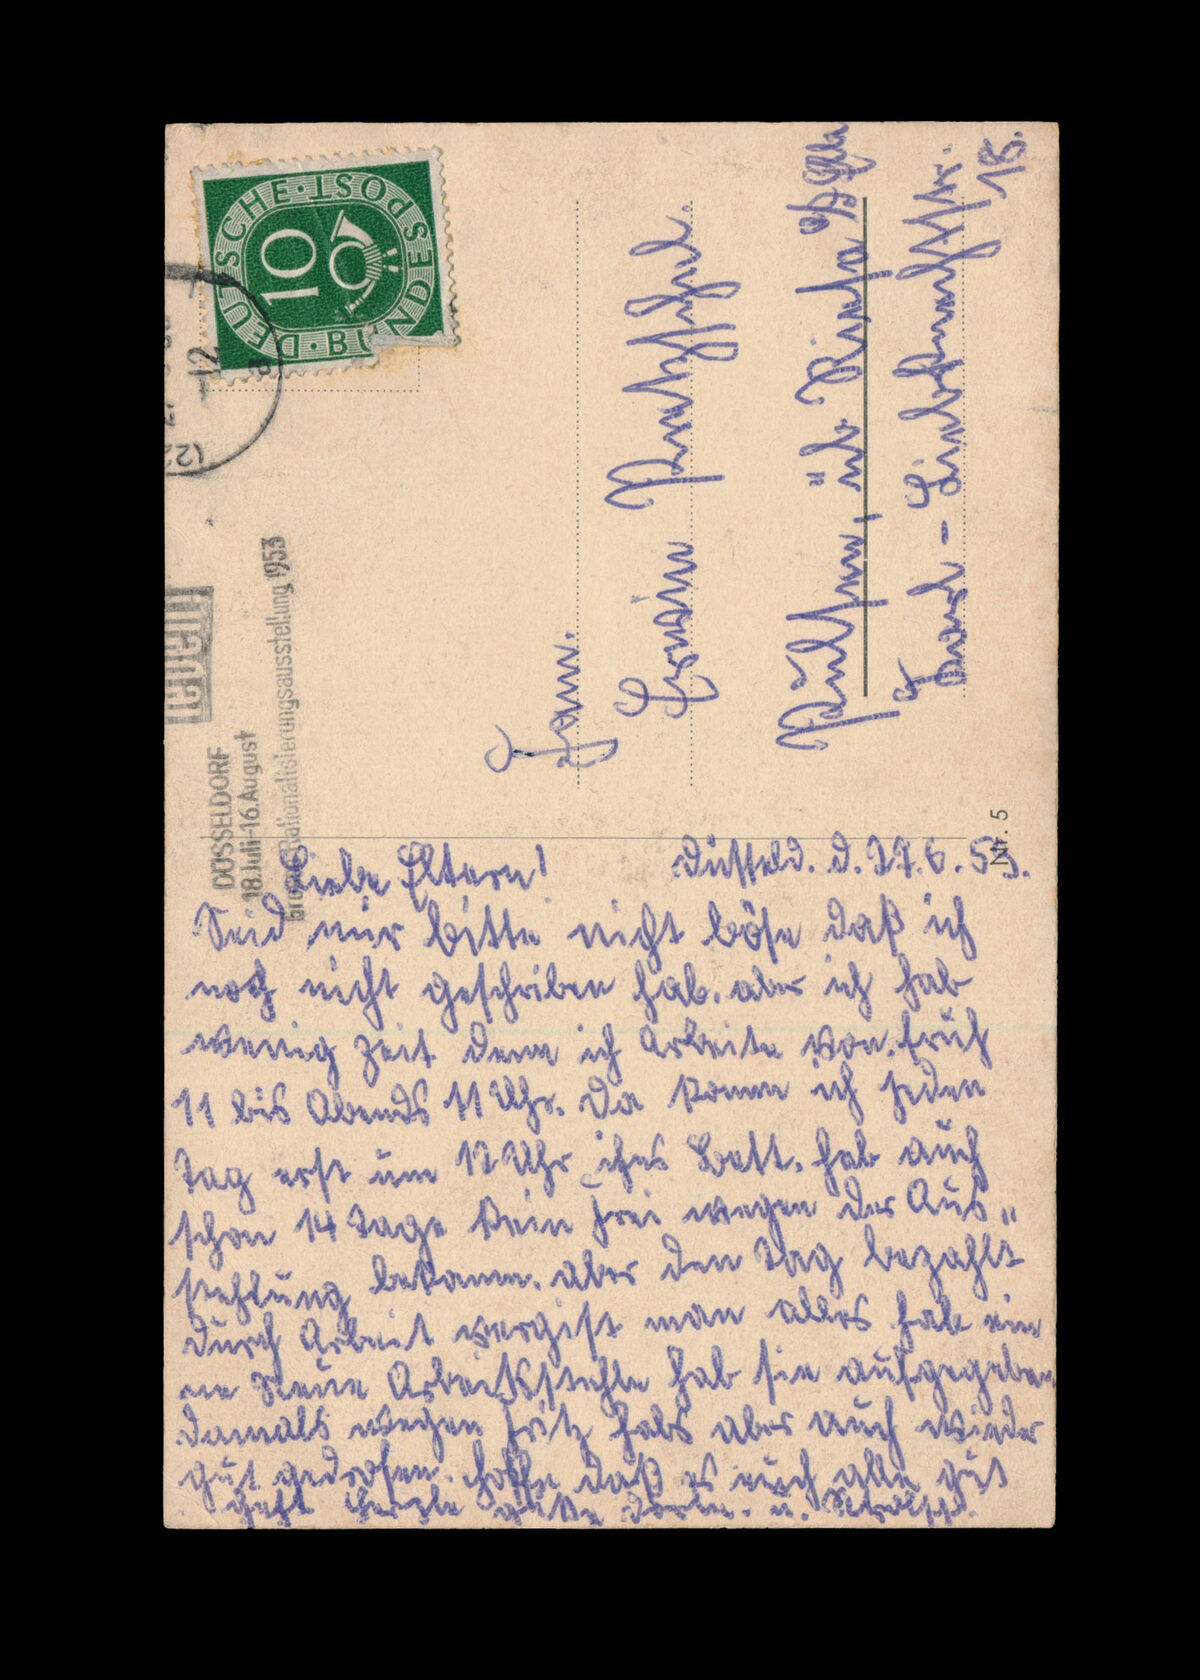 DEUTSCHE · BUNDESPOST
10
12
a
(22
DÜSSELDORF
18.Juli-16.August
große Rationalisierungsausstellung 1953
Fam.
Erwin
üb. Riesa a/Elbe
18.
Nr. 5
Düsseld. d. 27.6.53.
Liebe Eltern!
Seid mir bitte nicht böse daß ich
noch nicht geschriben hab. aber ich hab
wenig Zeit denn ich Arbeite von früh
11 bis Abends 11 Uhr. da komm ich jeden
tag erst um 12 Uhr ihns Bett. hab auch
schon 14 tage kein frei wegen der Aus„
stehlung bekamm. aber den tag bezahlt
durch Arbeit vergist man alles hab ein
ne Neue Arbeitsstehle hab sie aufgegeben
damals wegen Fritz habs aber auch wieder
gut gedrofen. hoffe daß es euch alle gut
geht Herzle grüße